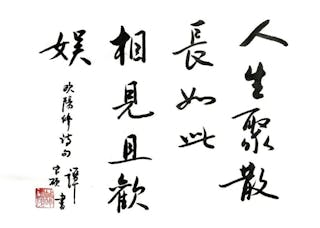 人生聚散
長如此
相見且歡
娛
歐陽修詩句
譚
書